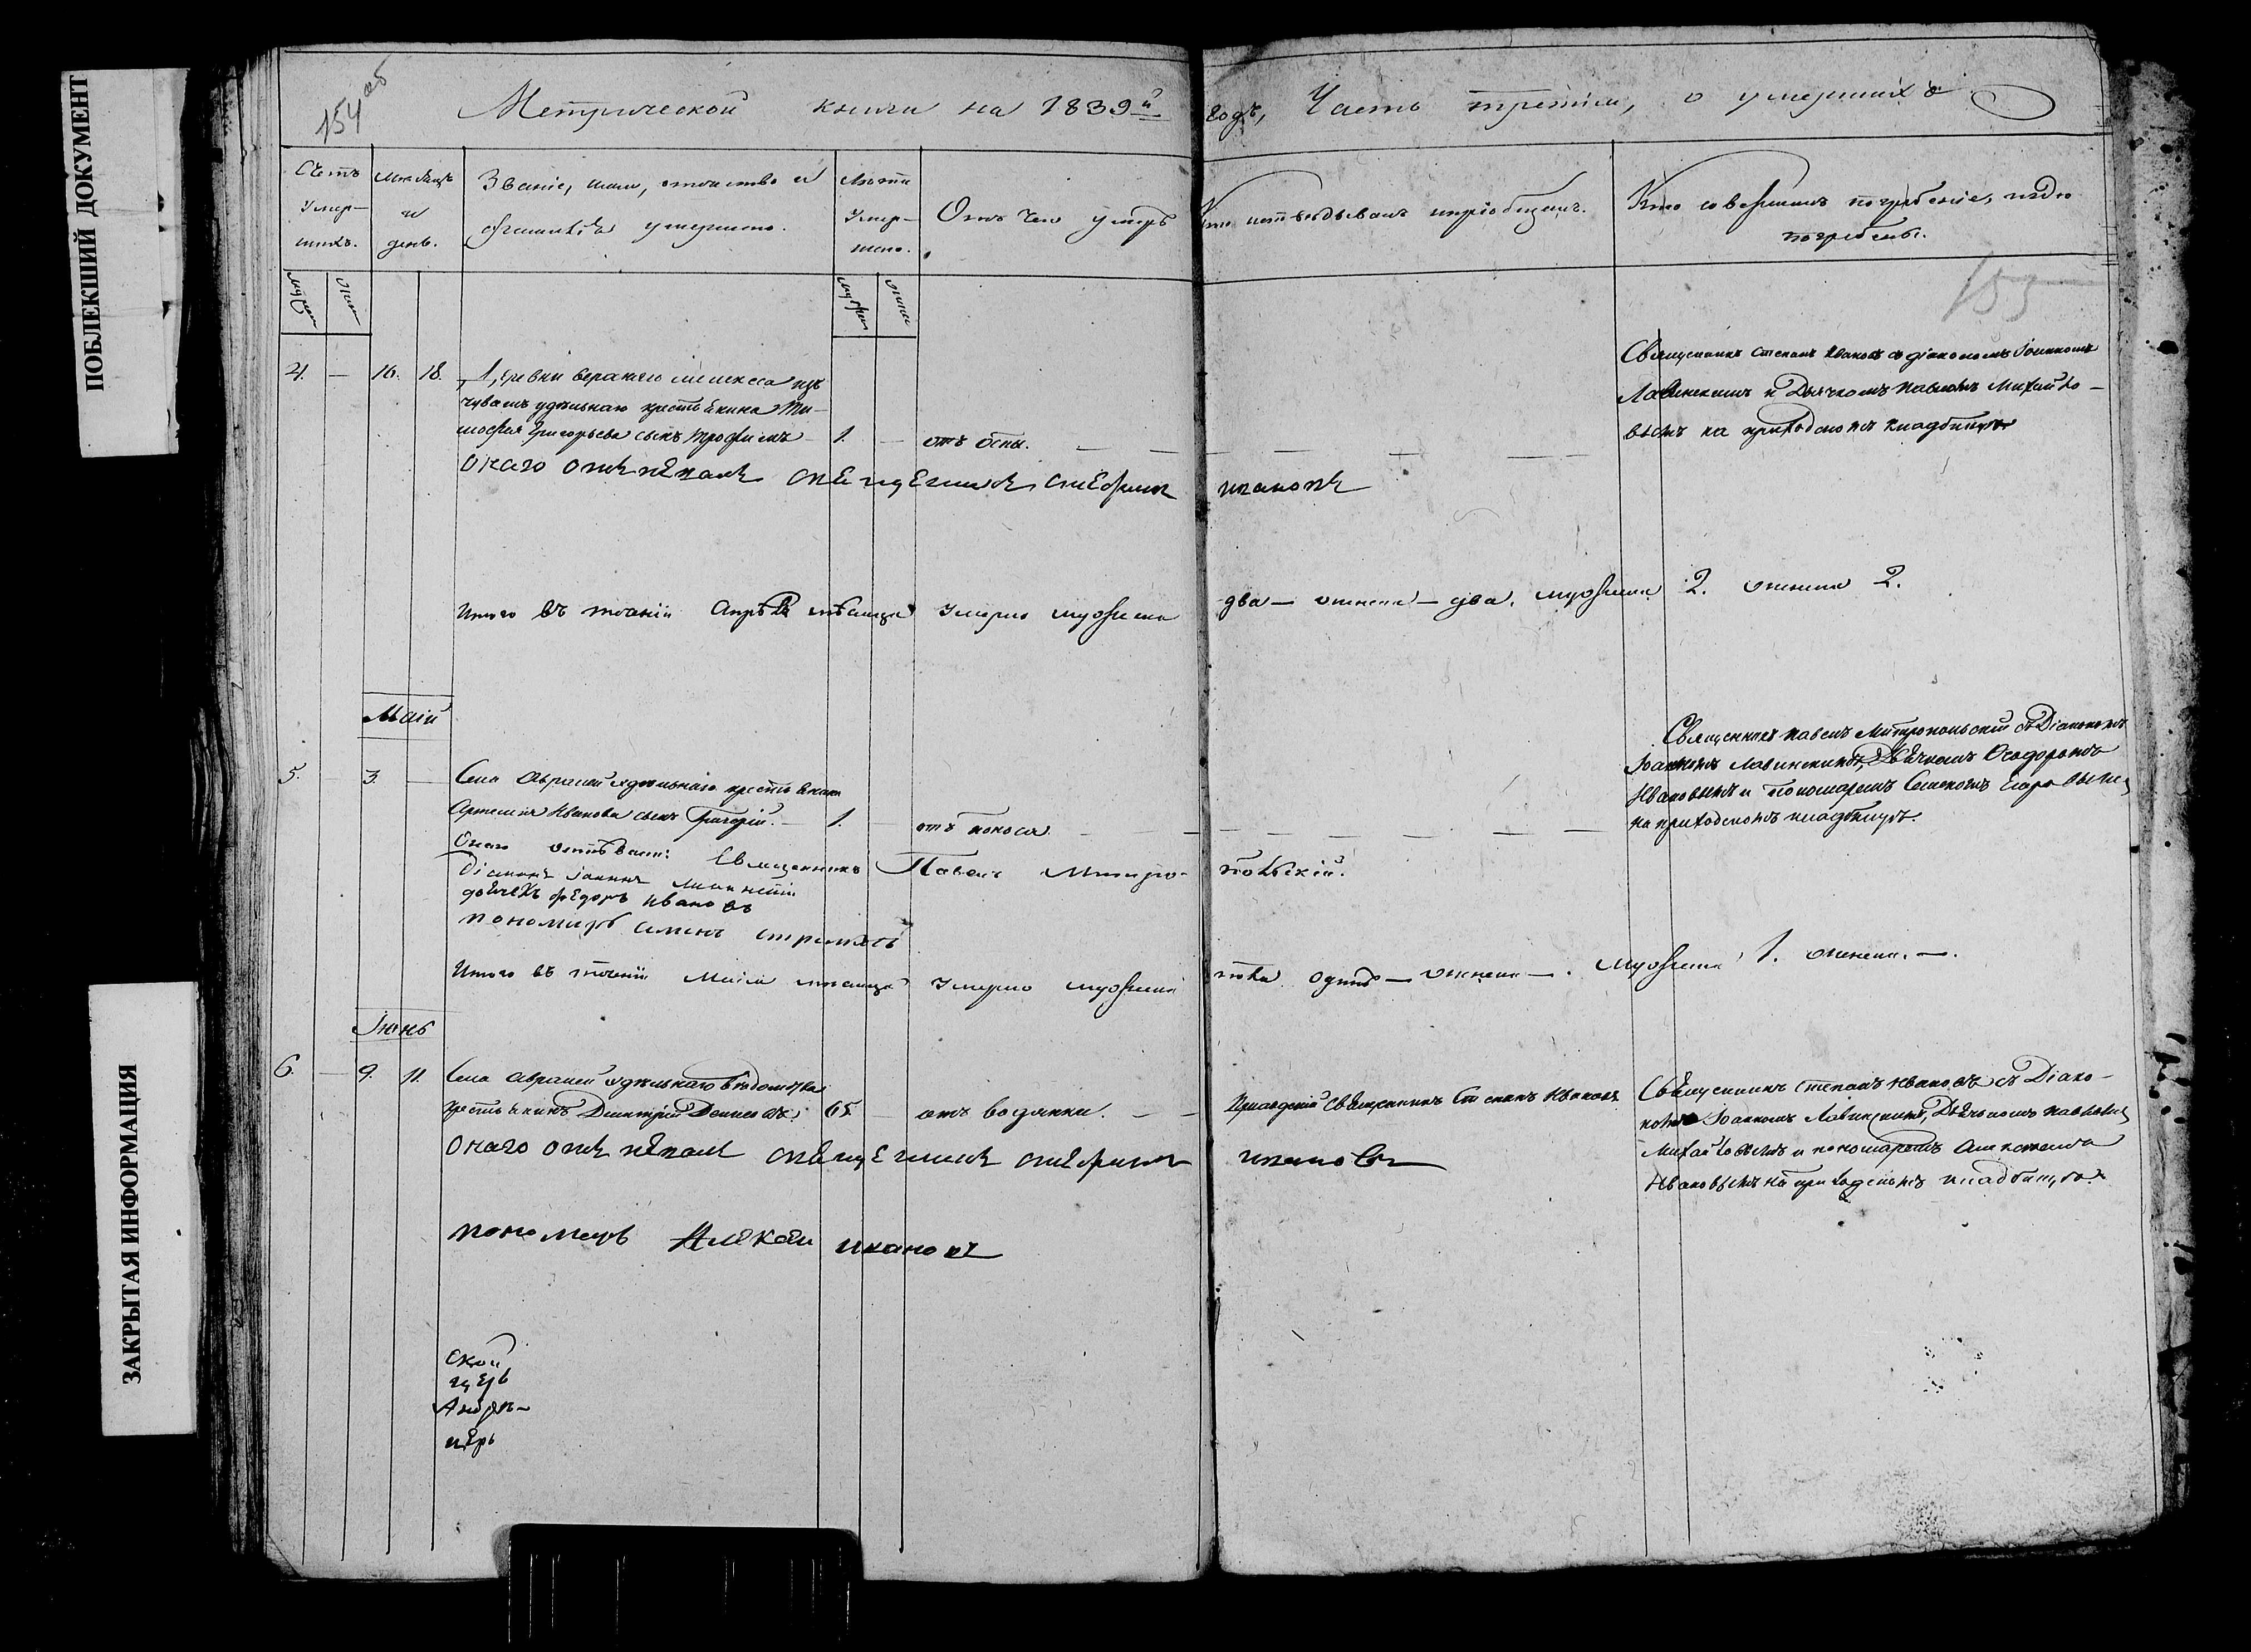 ПОБЛЕКШИЙ ДОКУМЕНТ
ЗАКРЫТАЯ ИНФОРМАЦИЯ
154 об
Метрической книги на 1839й годъ, Часть третія, о умершихъ
Счетъ умер-шихъ.
Мѣсяцъ и день.
Званіе, имя, отчество и фамилія умершаго.
Лѣта умер-шаго.
Отъ чего умеръ
Кто исповѣдывалъ и пріобщалъ.
Кто совершалъ погребеніе, и гдѣ погребены.
153
4. — 16. 18. Деревни верхняго мелекеса изъ
чувашъ удѣльнаго крестьянина Ти-
мофея Григорьева сынъ Трофимъ 1. — отъ оспы.
Священникъ Стефанъ Ивановъ съ діакономъ Іоанномъ
Лавинскимъ и Дьячкомъ Павломъ Михайло-
вымъ на приходскомъ кладбищѣ
онаго отпѣвалъ священникъ Стефанъ Ивановъ
Итого въ теченіи Апрѣля мѣсяца умерло мужеска два — женска — два. мужеска 2. женска 2.
Маій
5. 3. — Села Авралей удѣльнаго крестьянина
Артемія Иванова сынъ Григорій. — 1. отъ поноса
Священникъ Павелъ Митропольскій съ Діакономъ
Іоанномъ Лавинскимъ, Дьячкомъ Ѳеодоромъ
Ивановымъ и пономаремъ Семеномъ
на приходскомъ кладбищѣ.
Онаго отпѣвали: Священникъ Павелъ Митропольскій.
Діаконъ Іоаннъ Лавинскій
дьячекъ Федоръ Ивановъ
пономарь Семенъ
Итого въ теченіи Маія мѣсяца умерло мужеска пола одинъ — женска —. мужеска 1. женска. —.
Іюнь
6. — 9. 11. Села Авралей удѣльнаго вѣдомства
крестьянинъ Димитрій Денисовъ. 65 — отъ водянки. — —
Приходскій Священникъ Стефанъ Ивановъ
Священникъ Стефанъ Ивановъ съ Діако-
номъ Іоанномъ Лавинскимъ, Дьячкомъ Павломъ
Михайловымъ и пономаремъ Алексѣемъ
Ивановымъ на приходскомъ кладбищѣ.
Онаго отпѣвалъ священникъ Стефанъ Ивановъ
пономарь Алексѣй Ивановъ
ской
церь
Андрѣ-